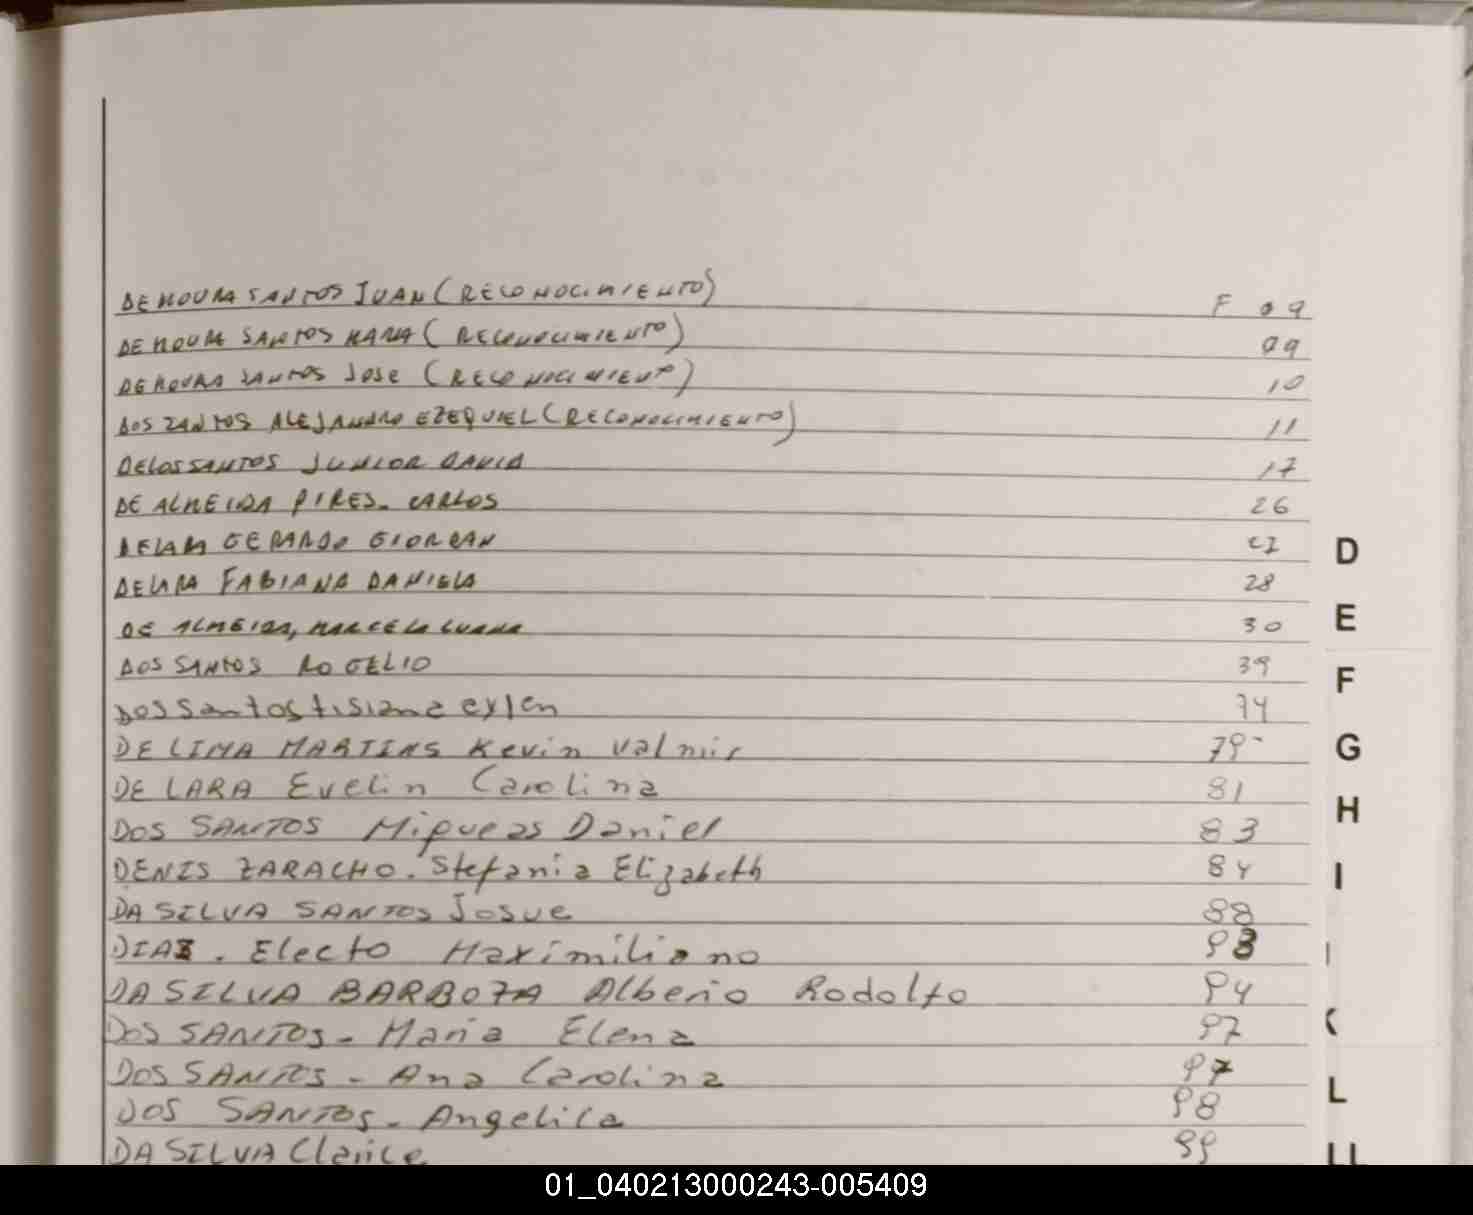 DE MOURA SANTOS JUAN (RECONOCIMIENTO) F 09
DE MOURA SANTOS MARIA (RECONOCIMIENTO) 09
DE MOURA SANTOS JOSE (RECONOCIMIENTO) 10
DOS SANTOS ALEJANDRO EZEQUIEL (RECONOCIMIENTO) 11
DELOSSANTOS JUNIOR DAVID 17
DE ALMEIDA PIRES. CARLOS 26
DELARA GERARDO 27
DELARA FABIANA DANIELA 28
DE ALMEIDA, MARCELA LUANA 30
DOS SANTOS ROGELIO 39
DOS Santos tisiana eylen 74
DE LIMA MARTINS Kevin Valmir 79
DE LARA Evelin Carolina 81
DOS SANTOS Miqueas Daniel 83
DENIS ZARACHO. Stefania Elizabeth 84
DA SILVA SANTOS Josue 88
DIAZ. Electo Maximiliano 93
DA SILVA BARBOZA Alberio Rodolfo 94
DOS SANTOS - Maria Elena 97
DOS SANTOS - Ana Carolina 97
DOS SANTOS - Angelica 98
DA SILVA Clarice 99
D
E
F
G
H
I
K
L
LL
01_040213000243-005409